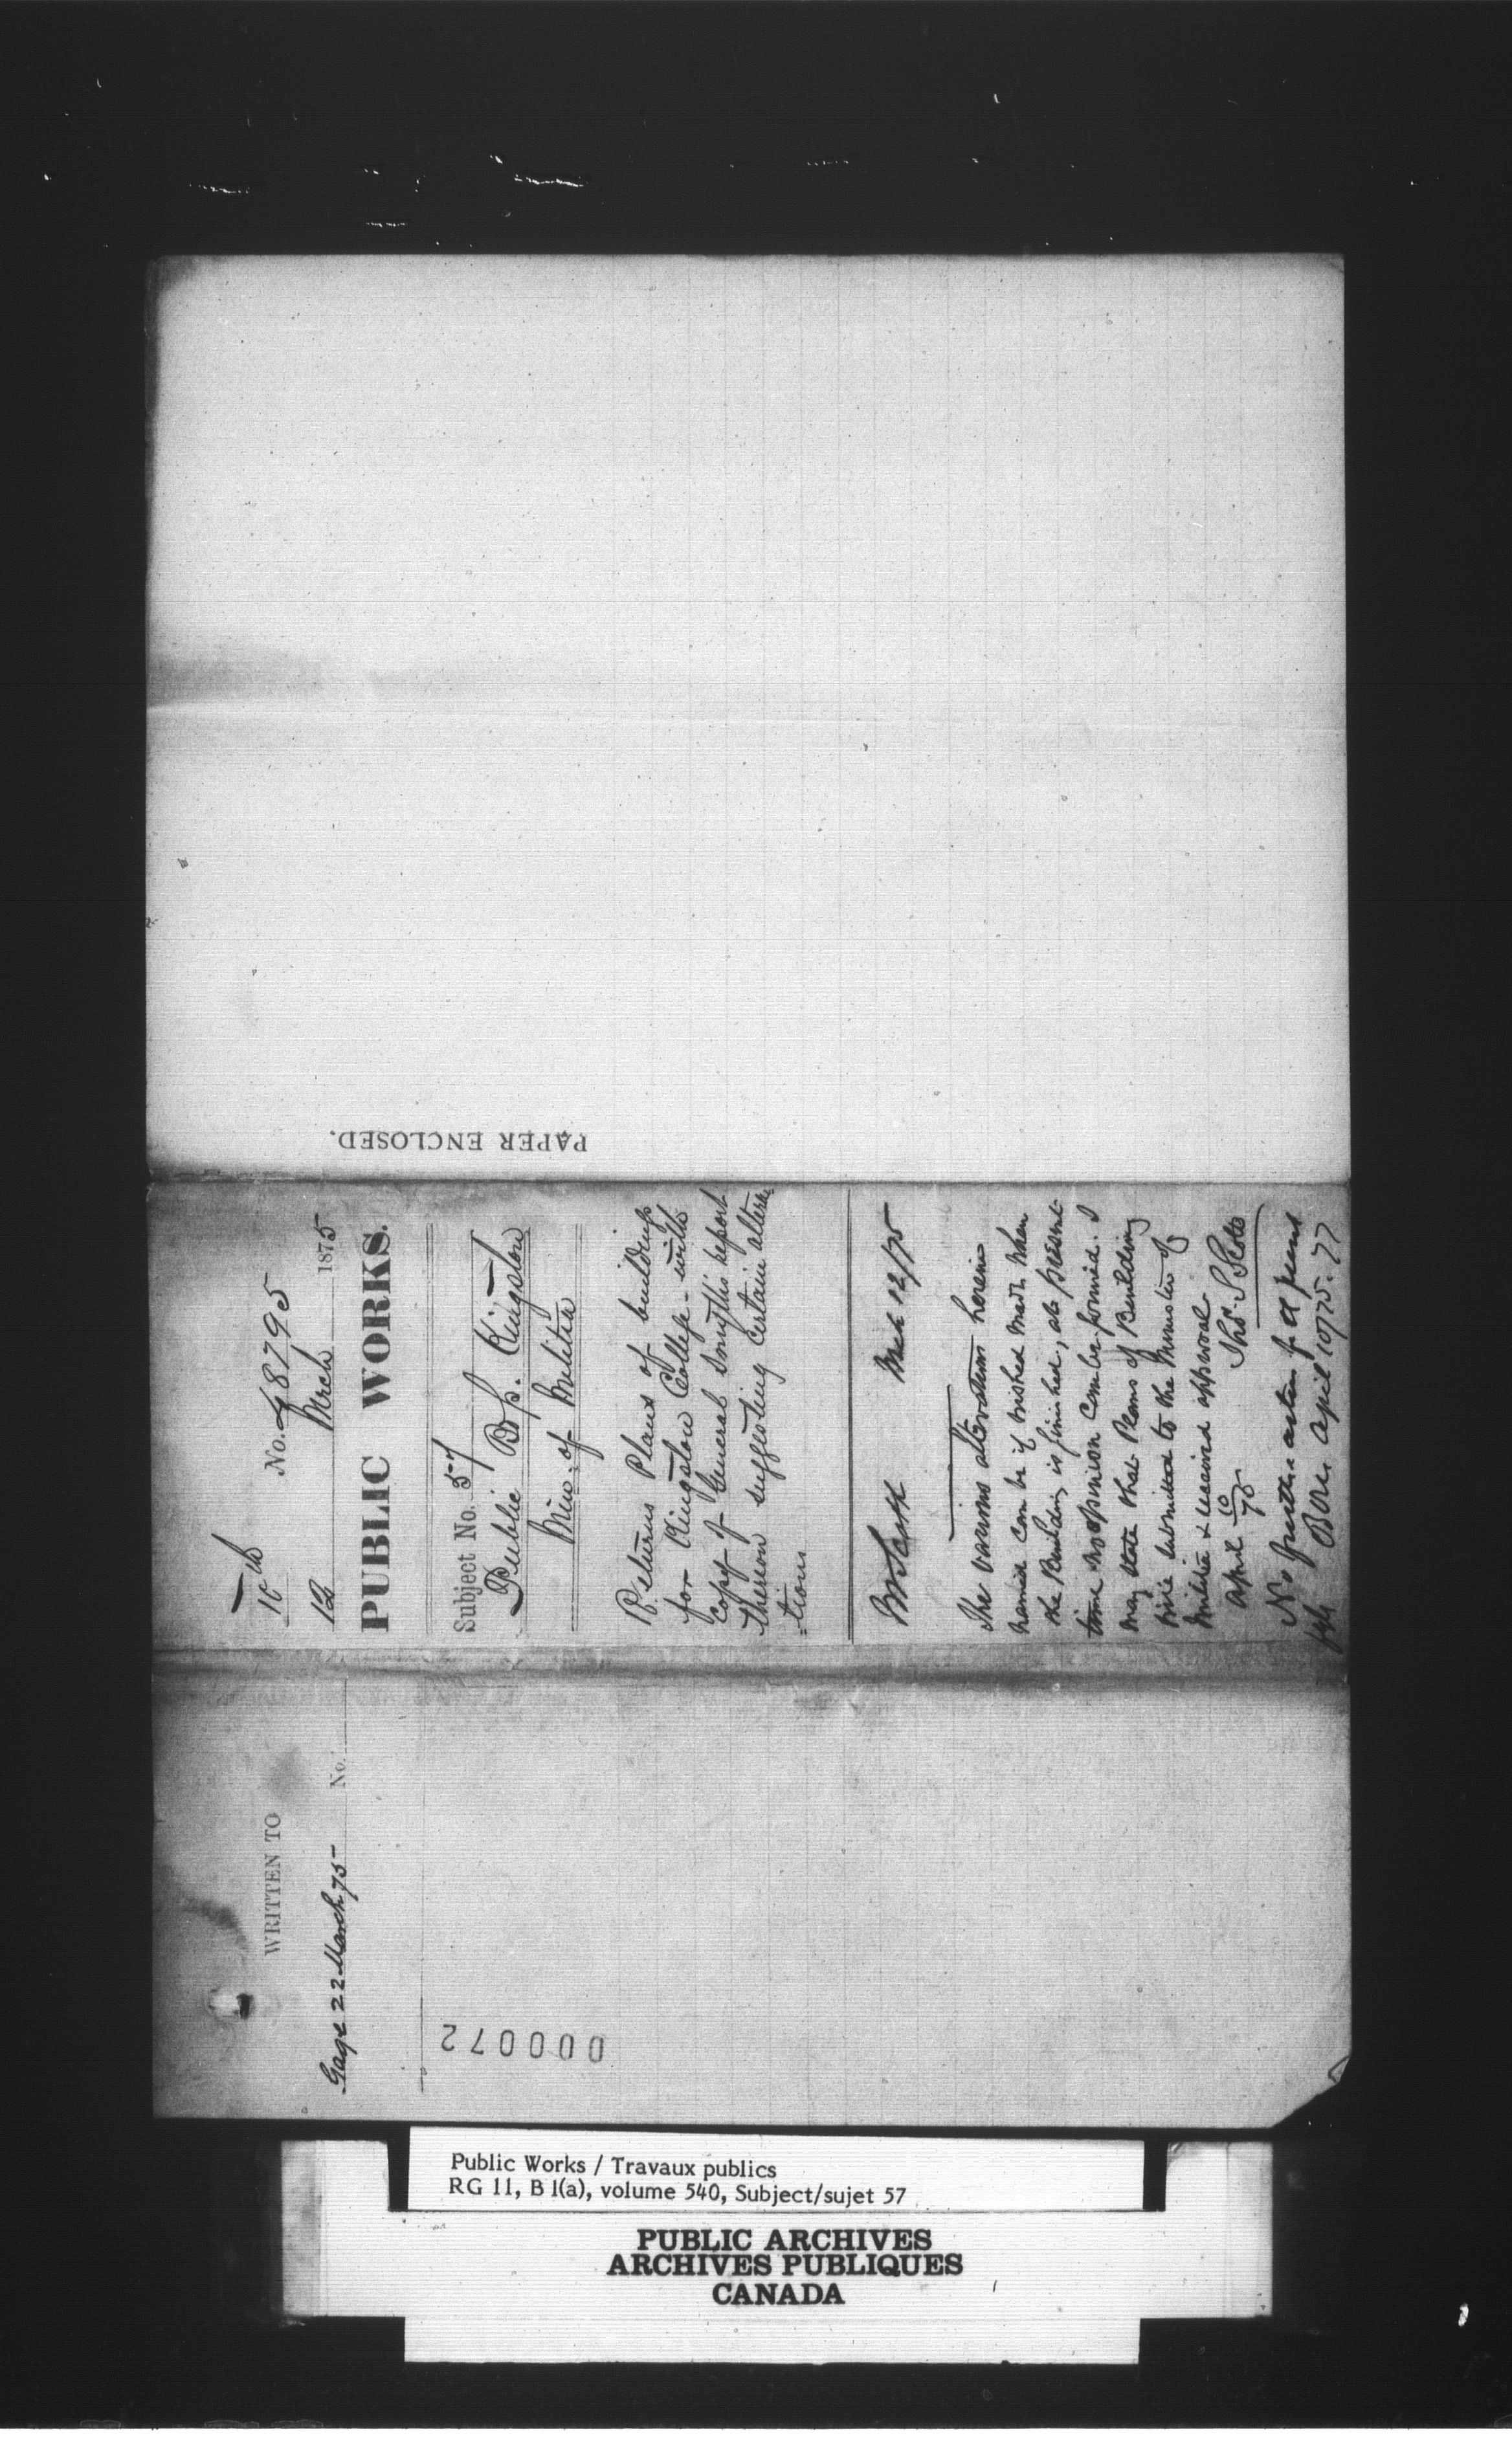 10th
No. 48795
12 March 1875
PUBLIC WORKS.
Subject No. 57
Public Bgs. Kingston
Min. of Militia
Returns Plans of buildings
for Kingston College - with
copy of General Smyth's report
thereon suggesting certain altera
=tions
Mr Scott Mch 12/75
The various alterations herein
named can be if wished made when
the Building is finished, at present
time no opinion can be formed. I
may state that Plans of Building
were submitted to the Minister of
Militia & received approval
Thos. S Scott
April 10/75
No further action
April 10 75.
PAPER ENCLOSED.
WRITTEN TO
No.
22 March 75
000072
Public Works / Travaux publics
RG 11, B 1(a), volume 540, Subject/sujet 57
PUBLIC ARCHIVES
ARCHIVES PUBLIQUES
CANADA